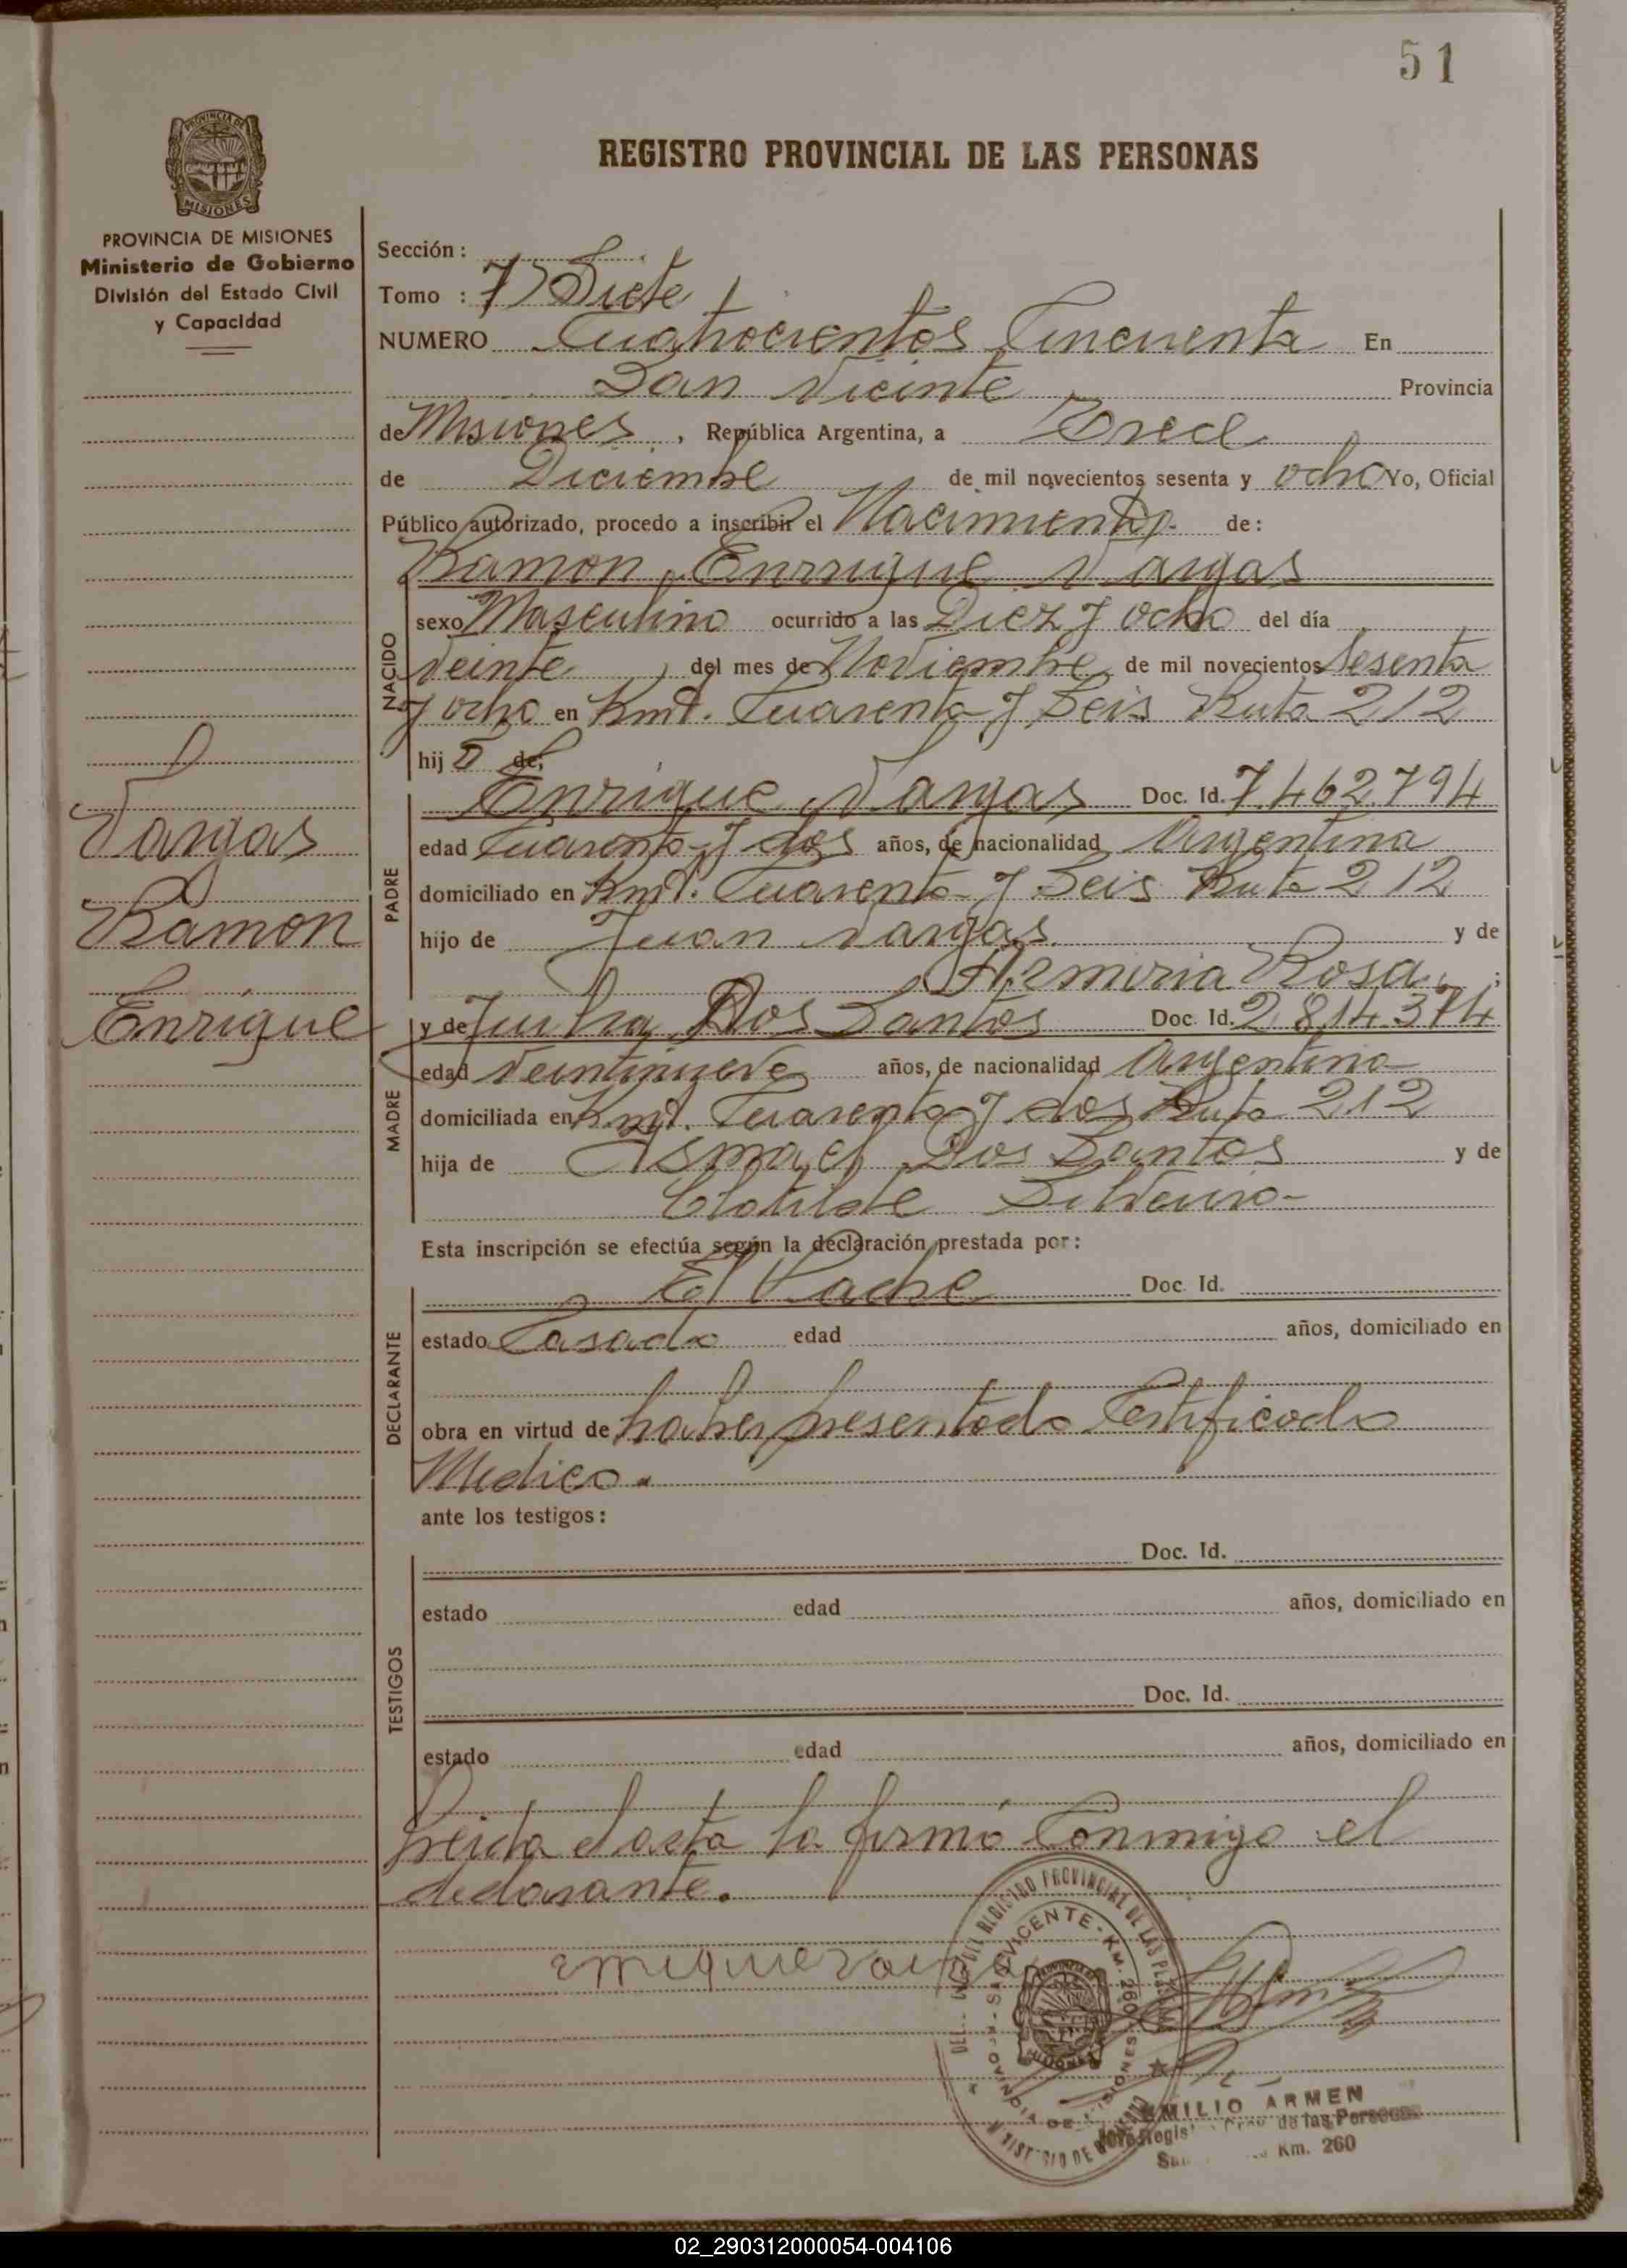 51
PROVINCIA DE
MISIONES
REGISTRO PROVINCIAL DE LAS PERSONAS
PROVINCIA DE MISIONES
Ministerio de Gobierno
División del Estado Civil
y Capacidad
Vargas
Ramon
Enrique
Sección:
Tomo : 7) Siete
NUMERO Cuatrocientos Cincuenta En
San Vicente Provincia
de Misiones, República Argentina, a Trece
de Diciembre de mil novecientos sesenta y ocho Yo, Oficial
Público autorizado, procedo a inscribir el Nacimiento de:
Ramon Enrrique Vargas
NACIDO
sexo Masculino ocurrido a las Diez y ocho del día
Veinte del mes de Noviembre de mil novecientos Sesenta
y ocho en Kmt. Cuarenta y Seis Ruta 212
hijo de:
PADRE
Enrique Vargas Doc. Id. 7.462.794
edad Cuarenta y dos años, de nacionalidad Argentina
domiciliado en Kmt. Cuarenta y Seis Ruta 212
hijo de Juan Vargas y de
Rosa ;
MADRE
y de Dos Santos Doc. Id. 2.814.374
edad Veintinueve años, de nacionalidad Argentina
domiciliada en Kmt. Cuarenta y dos Ruta 212
hija de Ismael Dos Santos y de
Clotilde
Esta inscripción se efectúa según la declaración prestada por:
DECLARANTE
El Padre Doc. Id.
estado Casado edad años, domiciliado en
obra en virtud de haber presentado Certificado
Medico.
ante los testigos:
TESTIGOS
Doc. Id.
estado edad años, domiciliado en
Doc. Id.
estado edad años, domiciliado en
Leida el acta la firmó Conmigo el
declarante.
REGISTRO PROVINCIAL DE LAS
VICENTE - KM. 260
PROVINCIA DE MISIONES
EMILIO ARMEN
de las Personas
Km. 260
02_290312000054-004106